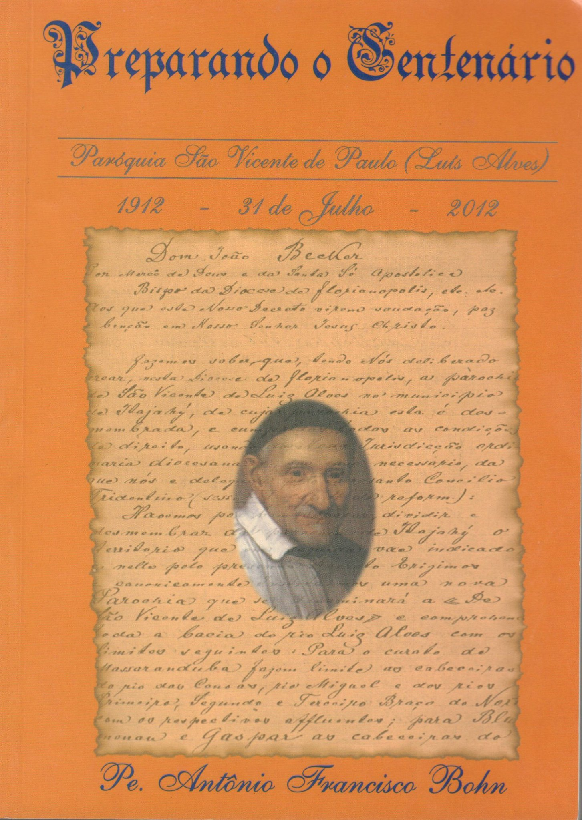 Preparando o Centenário
Paróquia São Vicente de Paulo (Luís Alves)
1912 - 31 de Julho - 2012
Dom João Becker
Por Mercê de Deus e da Santa Sé Apostolica
Bispo da Diocese de Florianopolis, etc. etc.
Aos que este Nosso Decreto virem saudação, paz
e benção em Nosso Senhor Jesus Christo.
fazemos saber, que, tendo Nós deliberado
crear, nesta Diocese de Florianopolis, a parochia
de São Vicente de Luiz Alves no municipio
de Itajahy, de cuja parochia esta é des-
membrada, e as condições
de direito, jurisdicção ordi
naria diocesana necessário, da
que nós e Santo Concilio
Tridentino reform):
Havemos dividir e
desmembrar Itajahy o
territorio que vae indicado
e nelle pelo Erigimos
canonicamente uma nova
Parochia que se denominará a « De
São Vicente de Luiz Alves » e comprehen
toda a bacia do rio Luiz Alves com os
limites seguintes: Para o curato de
Massaranduba fazem limite as cabeceiras
do rio dos Canoas, rio Miguel e dos rios
Primeiro, Segundo e Terceiro Braço do Norte
com os respectivos affluentes; para Blu
menau e Gaspar as cabeceiras do
Pe. Antônio Francisco Bohn